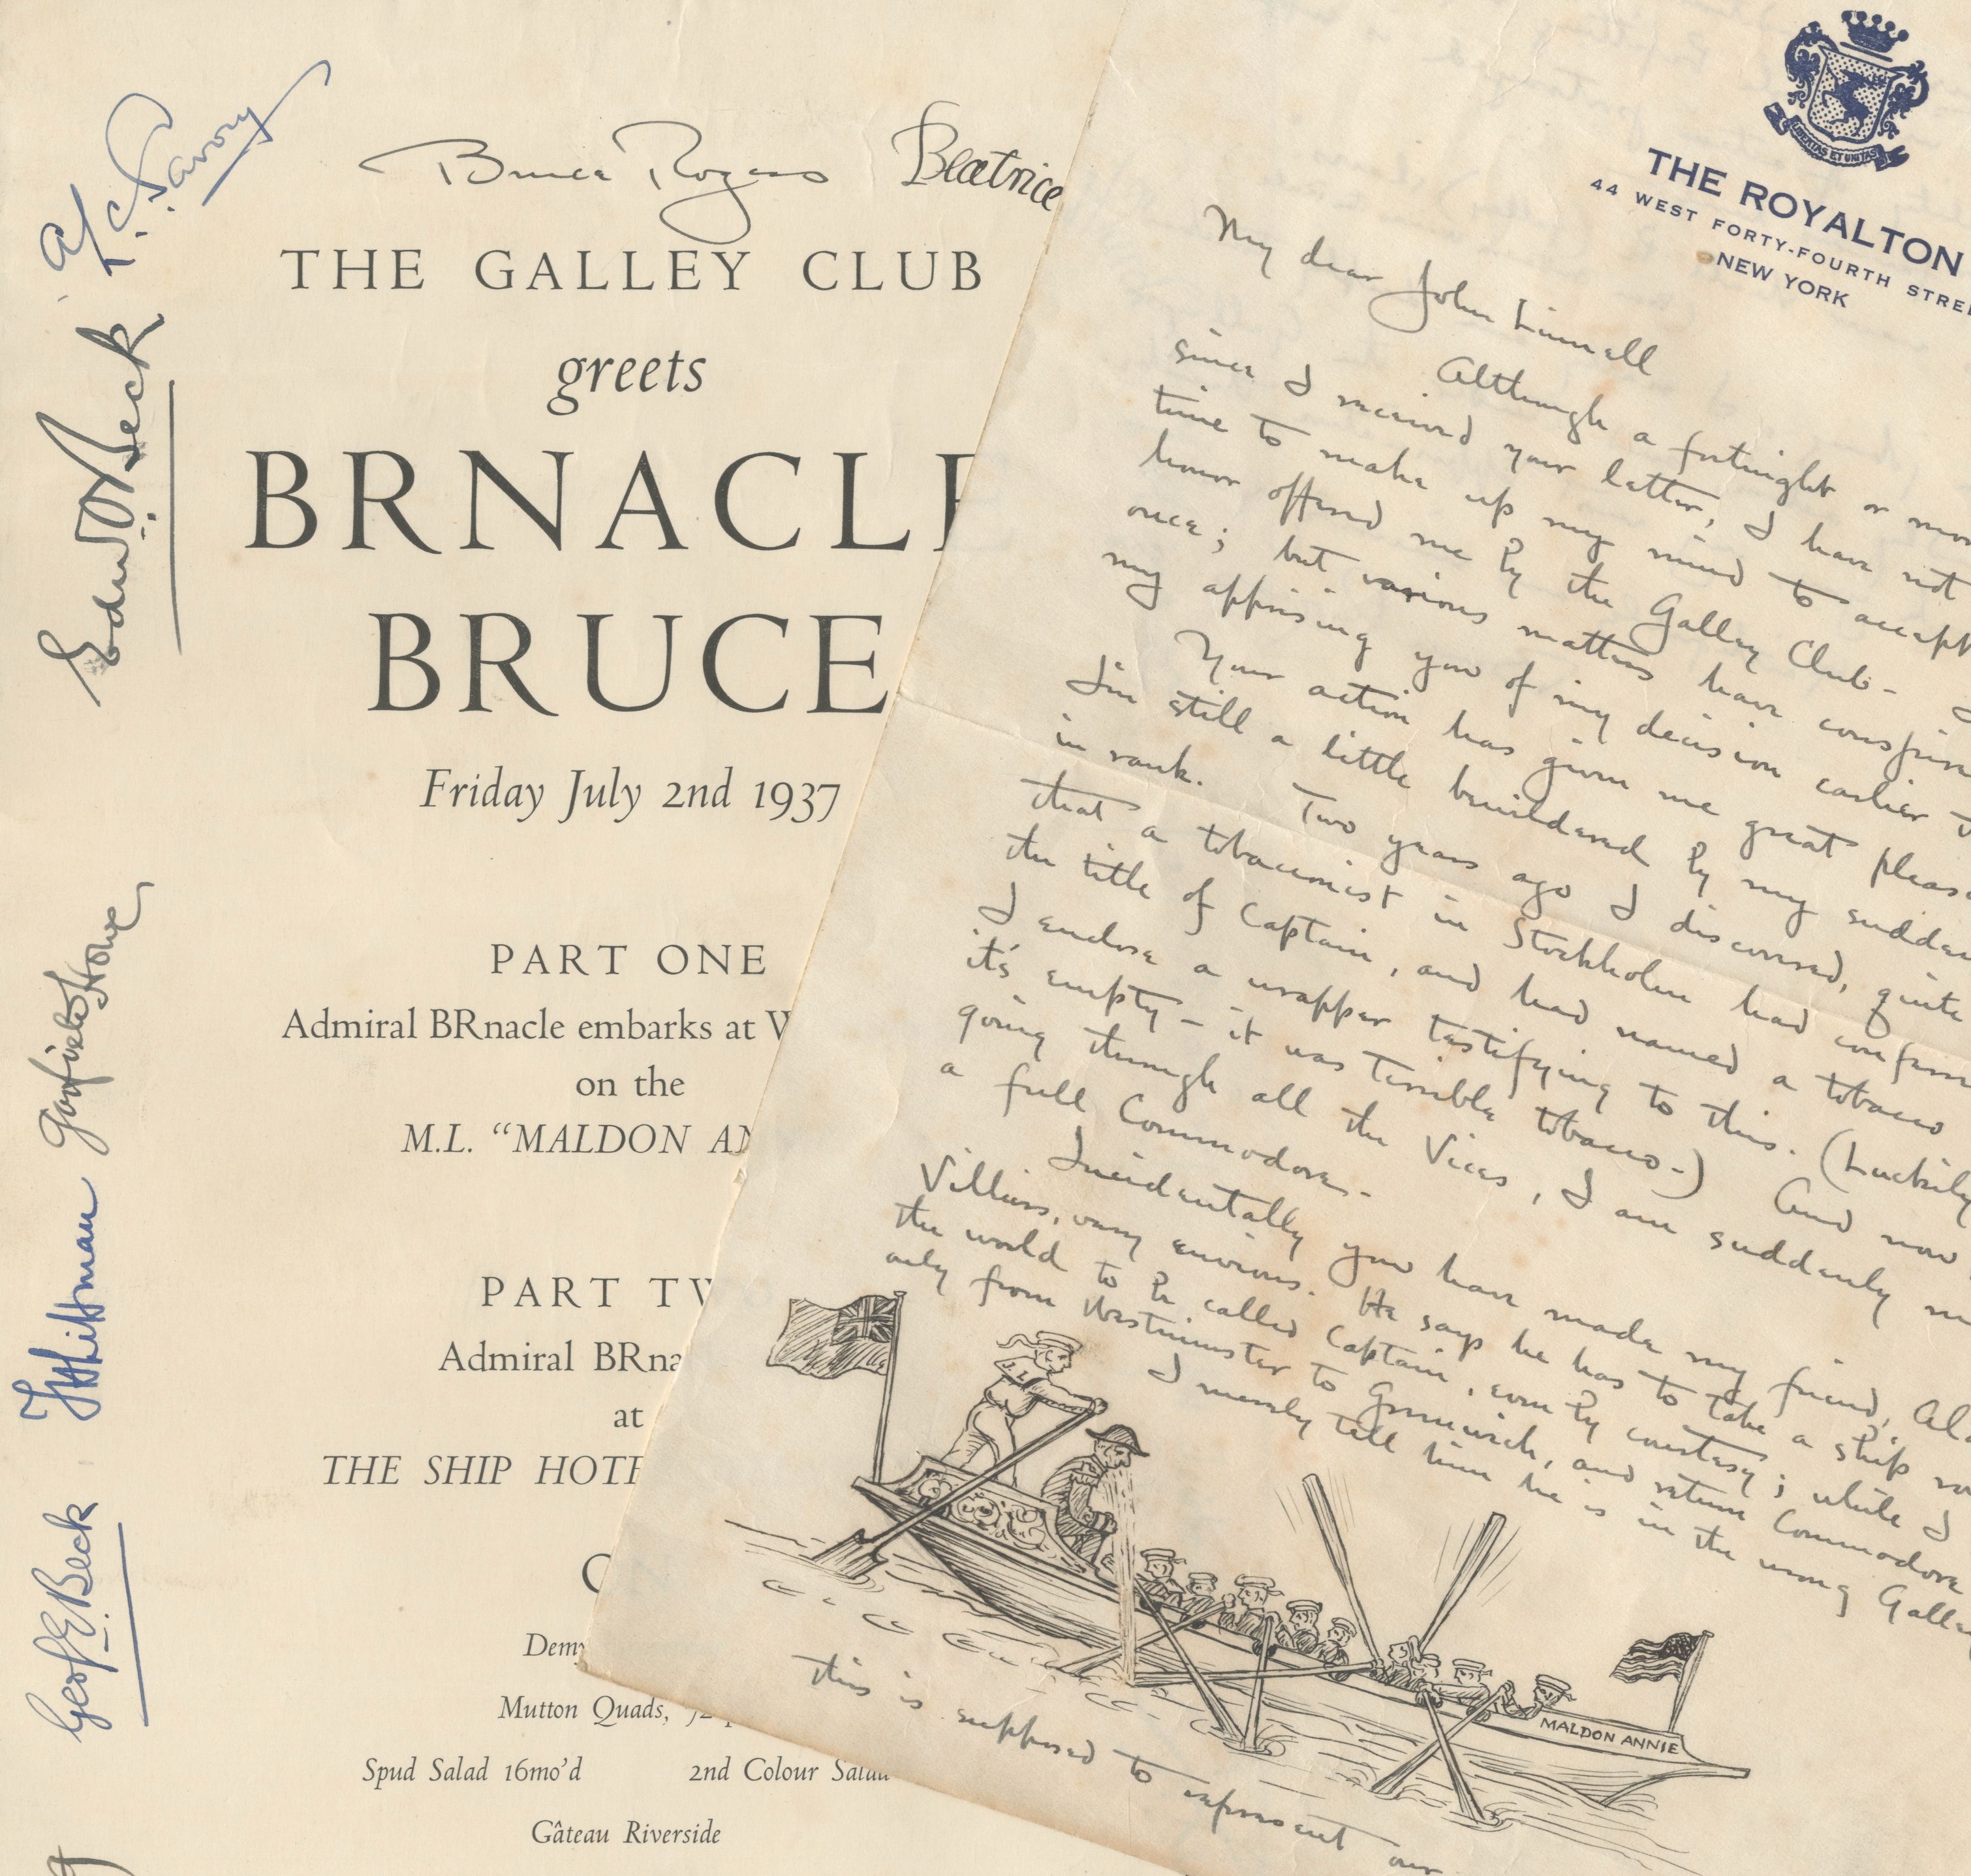 A. T. C. Savory
Bruce Rogers
Beatrice
THE GALLEY CLUB
greets
BRNACLE
BRUCE
Friday July 2nd 1937
PART ONE
Admiral BRnacle embarks at W
on the
M.L. “MALDON AN
PART TW
Admiral BRna
at
THE SHIP HOTE
Dem
Mutton Quads, 72
Spud Salad 16mo'd
2nd Colour Salad
Gâteau Riverside
Edw. O. Beck
Garfield Howe
Whitman
Geof. E. Beck
LIBERTAS ET UNITAS
THE ROYALTON
44 WEST FORTY-FOURTH STREE
NEW YORK
My dear John Linnell
Although a fortnight or mor
since I received your letter, I have not
time to make up my mind to accept
honor offered me by the Galley Club.
once; but various matters have conspir
my apprising you of my decision earlier
Your action has given me great pleas
I'm still a little bewildered by my sudden
in rank. Two years ago I discovered, quite
that a tobacconist in Stockholm had conferr
the title of Captain, and had named a tobacco
I enclose a wrapper testifying to this. (Luckily
it's empty – it was terrible tobacco.) And now
going through all the Vices, I am suddenly m
a full Commodore.
Incidentally you have made my friend, Al
Villiers, very envious. He says he has to take a ship ro
the world to be called Captain, even by courtesy; while I
only from Westminster to Greenwich, and return Commodore
I merely tell him he is in the wrong Galley
MALDON ANNIE
This is supposed to represent our